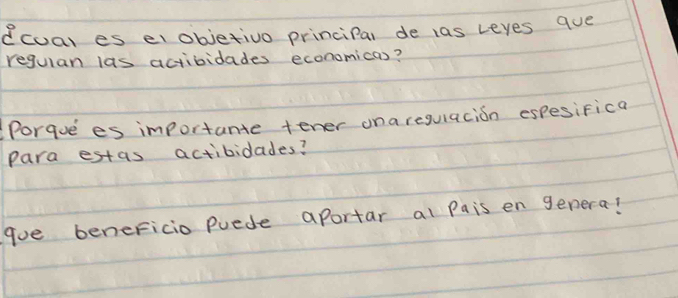 ¿cual es el objetivo principal de las Leyes que
regulan las actibidades economicas?
Porqué es importante tener una regulación espesifica
para estas actibidades?
que beneficio puede aportar al Pais en general